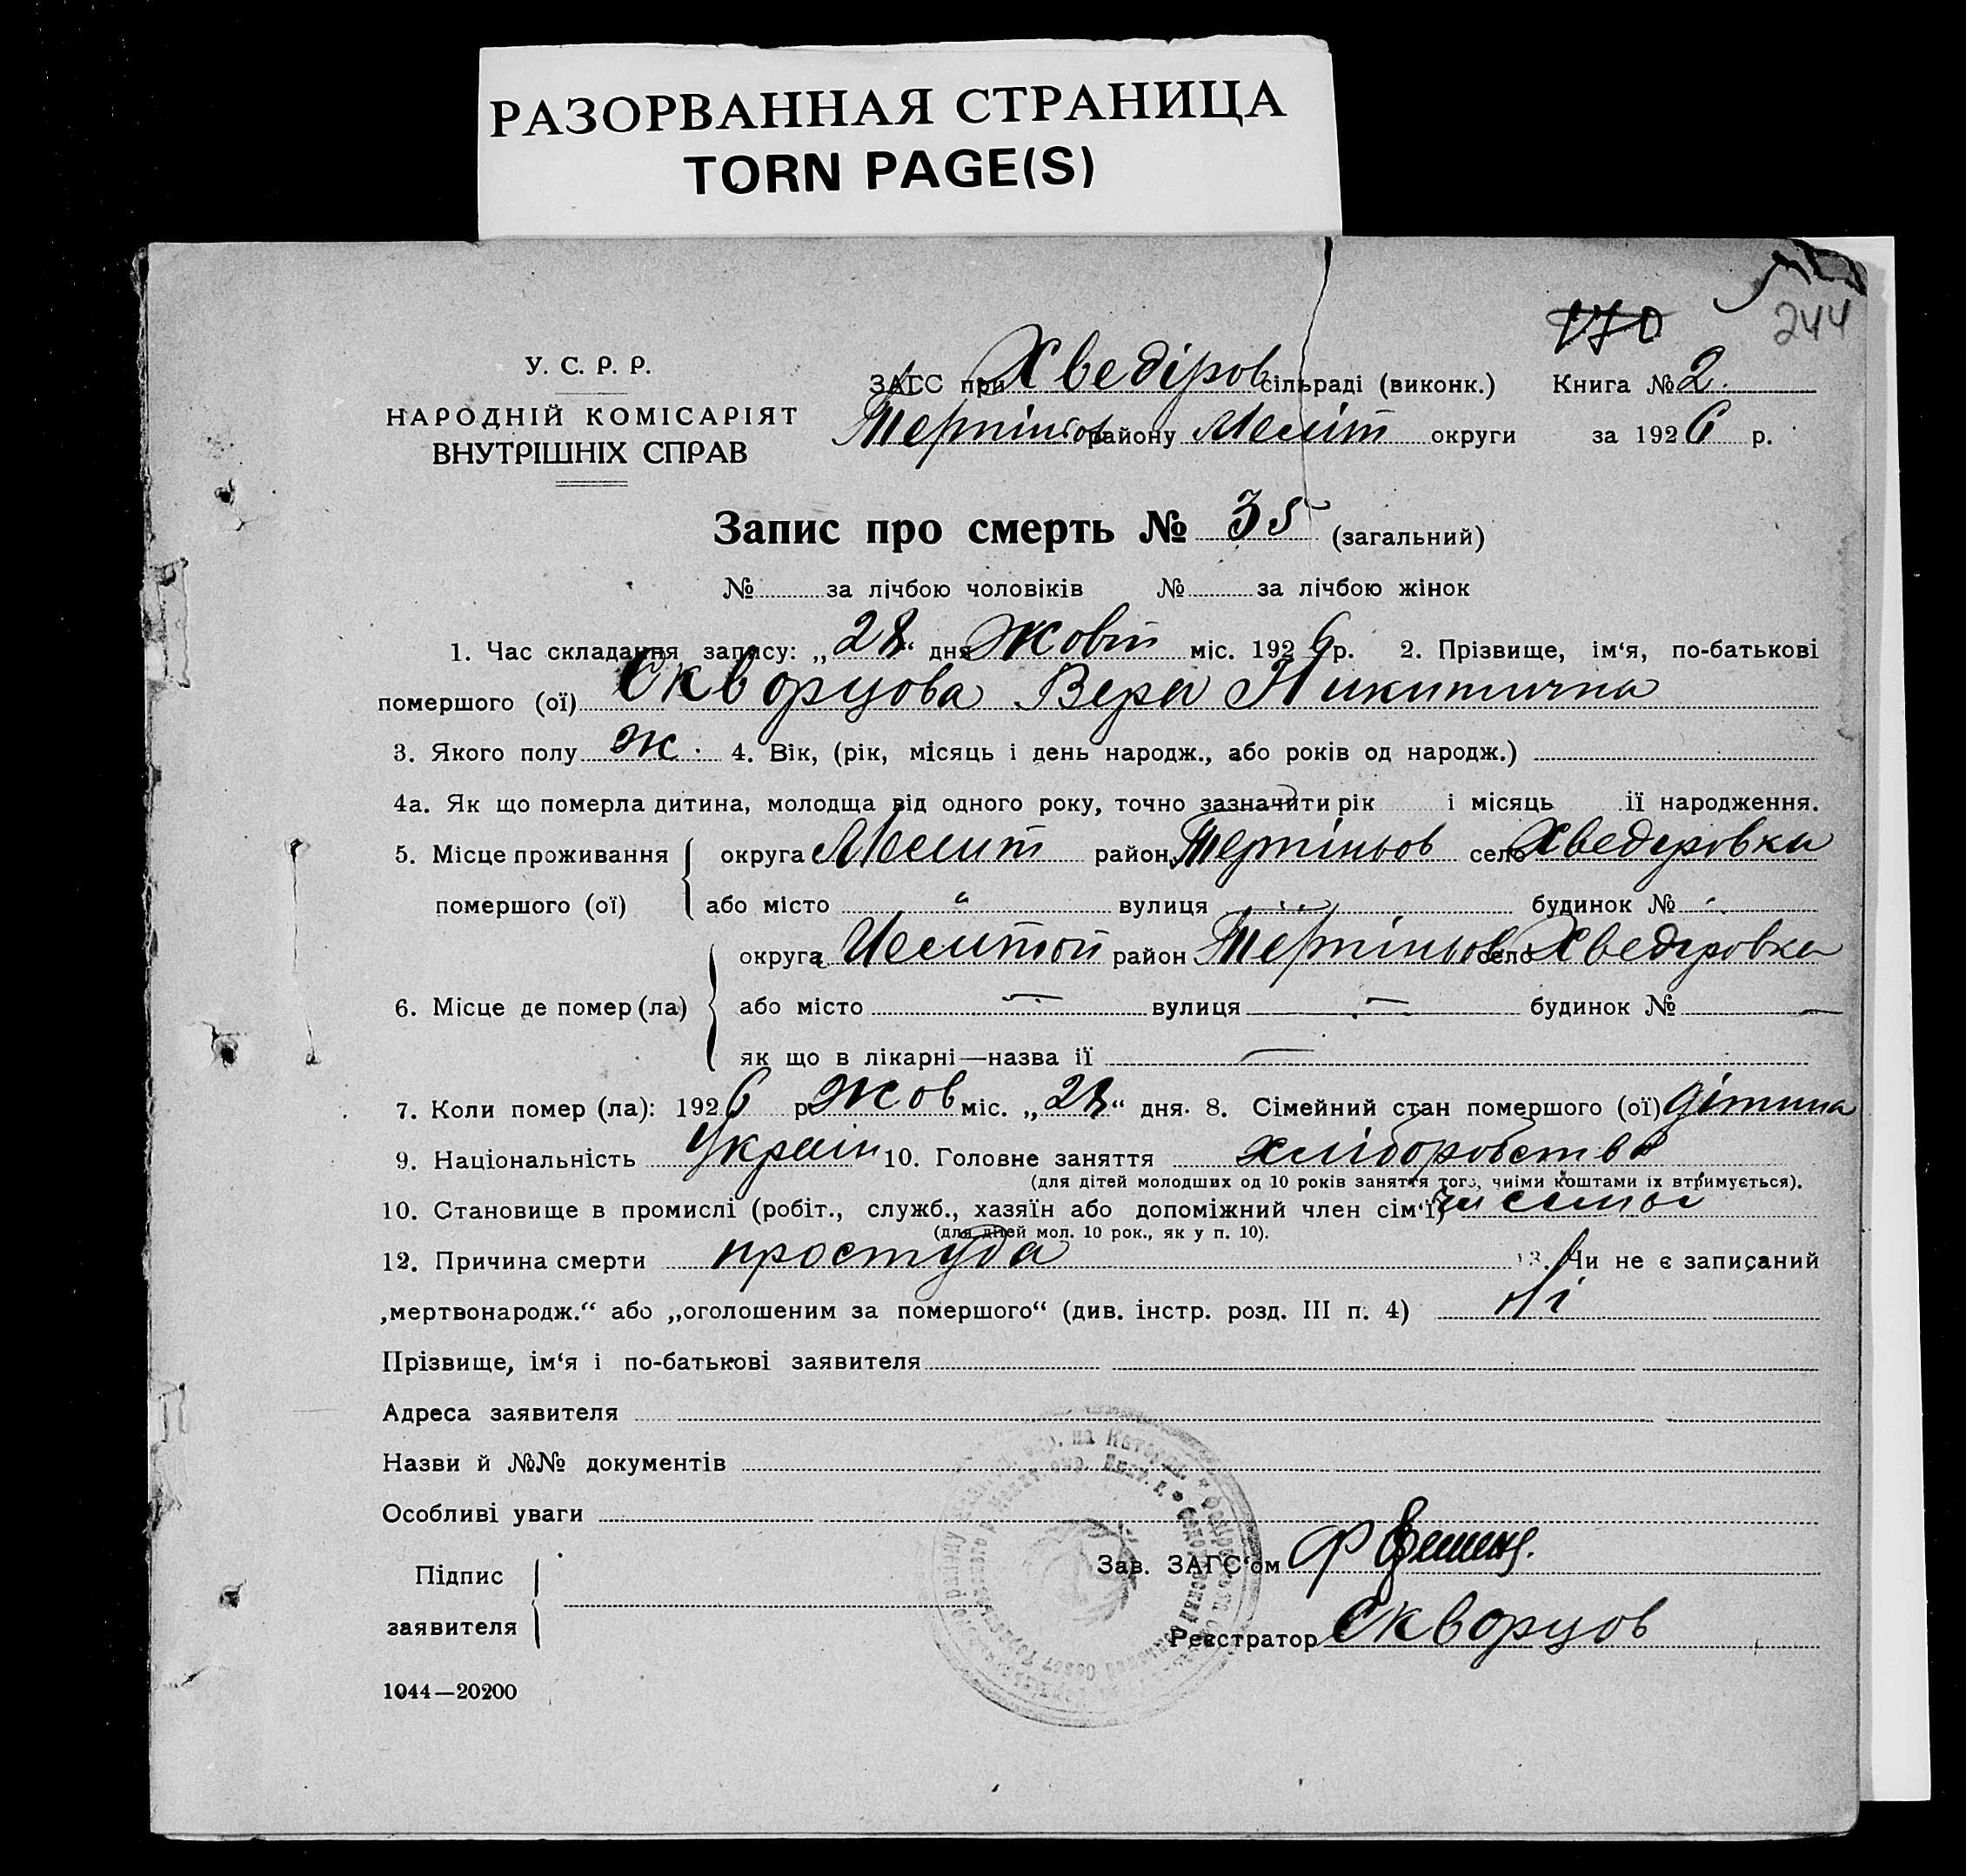 РАЗОРВАННАЯ СТРАНИЦА
TORN PAGE(S)
170 244
У. С. Р. Р.
ЗАГС при Хведіров сільраді (виконк.) Книга № 2.
НАРОДНІЙ КОМІСАРІЯТ
Терпіньов району Меліт округи за 1926 р.
ВНУТРІШНІХ СПРАВ
Запис про смерть № 35 (загальний)
№ за лічбою чоловіків № за лічбою жінок
1. Час складання запису: „28“ дня Жовт міс. 1926 р. 2. Прізвище, ім‘я, по-батькові
помершого (ої) Скворцова Вера Никитична
3. Якого полу Ж. 4. Вік, (рік, місяць і день народж., або років од народж.)
4а. Як що померла дитина, молодща від одного року, точно зазначити рік і місяць її народження.
5. Місце проживання округа Мелит район Терпіньов село Хведіровка
помершого (ої) або місто " вулиця " будинок № "
округа Мелитоп район Терпіньов село Хведіровка
6. Місце де помер (ла) або місто — вулиця — будинок № —
як що в лікарні—назва її —
7. Коли помер (ла): 1926 р Жов міс. „28“ дня. 8. Сімейний стан помершого (ої) дітина
9. Національність Украін 10. Головне заняття хліборобство
(для дітей молодших од 10 років заняття того, чиїми коштами їх втримується).
10. Становище в промислі (робіт., служб., хазяїн або допоміжний член сім‘ї)
(для дітей мол. 10 рок., як у п. 10).
12. Причина смерти простуда 13. Чи не є записаний
„мертвонародж.“ або „оголошеним за помершого“ (див. інстр. розд. III п. 4) Ні
Прізвище, ім‘я і по-батькові заявителя
Адреса заявителя
Назви й №№ документів
Особливі уваги
Підпис
заявителя
Зав. ЗАГС‘ом
Реєстратор Скворцов
1044—20200